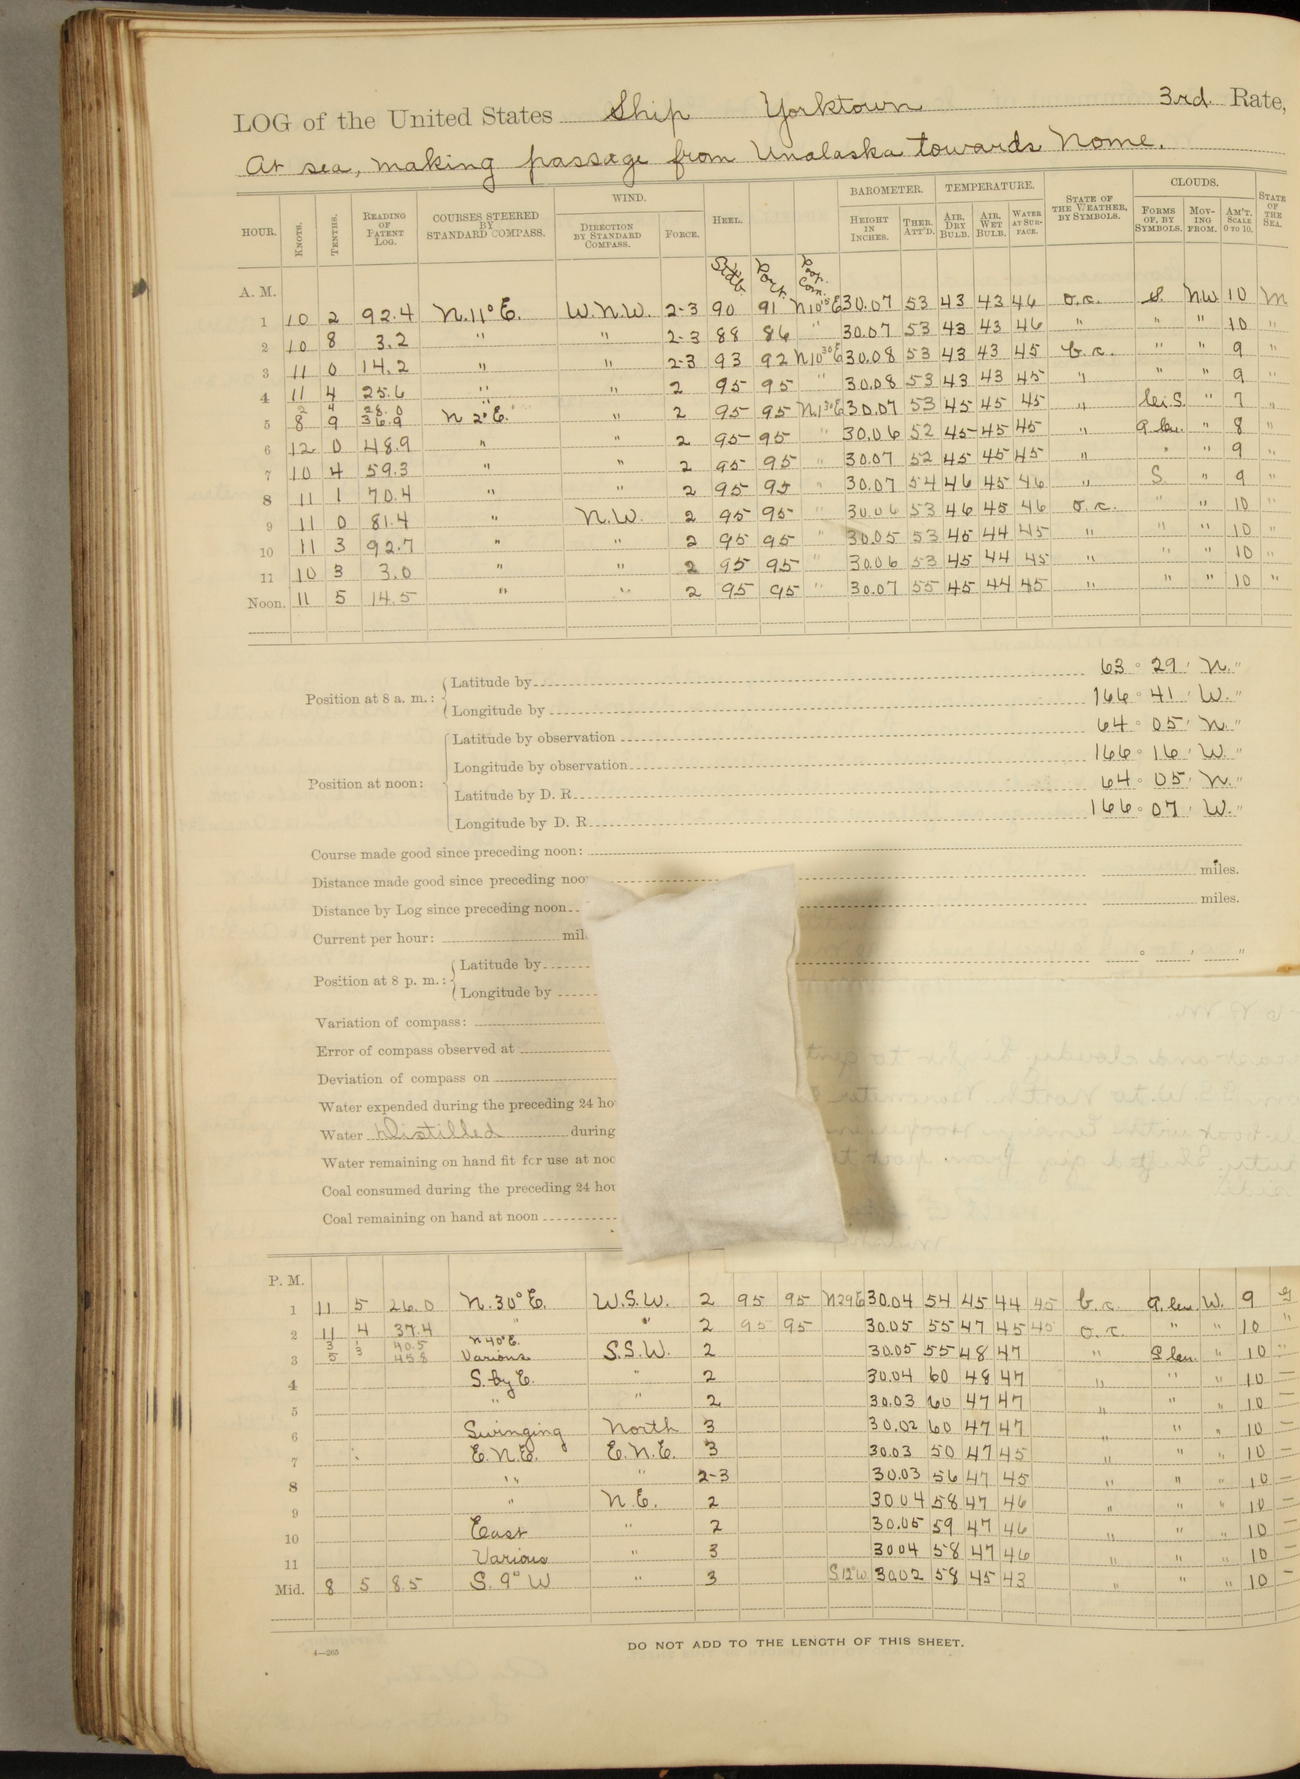 LOG of the United States Ship Yorktown 3rd Rate,
At sea, making passage from Unalaska towards Nome.
HOUR. KNOTS. TENTHS. READING OF PATENT LOG. COURSES STEERED BY STANDARD COMPASS. WIND. DIRECTION BY STANDARD COMPASS. FORCE. HEEL. BAROMETER. HEIGHT IN INCHES. THER. ATT'D. TEMPERATURE. AIR, DRY BULB. AIR, WET BULB. WATER AT SURFACE. STATE OF THE WEATHER, BY SYMBOLS. CLOUDS. FORMS OF, BY SYMBOLS. MOVING FROM. AM'T. SCALE 0 TO 10. STATE OF THE SEA.
A. M. Stdb. Port.
1 10 2 92.4 N.11° E. W.N.W. 2-3 90 91 30.07 53 43 43 46 o.c. S. NW 10 M
2 10 8 3.2 " " 2-3 88 86 " 30.07 53 43 43 46 " " " 10 "
3 11 0 14.2 " " 2-3 93 92 30.08 53 43 43 45 b.c. " " 9 "
4 11 4 25.6 " " 2 95 95 " 30.08 53 43 43 45 " " " 9 "
2 4 28.0
5 8 9 36.9 N 2° E. " 2 95 95 30.07 53 45 45 45 " " 7 "
6 12 0 48.9 " " 2 95 95 " 30.06 52 45 45 45 " " 8 "
7 10 4 59.3 " " 2 95 95 " 30.07 52 45 45 45 " " " 9 "
8 11 1 70.4 " " 2 95 95 " 30.07 54 46 45 46 " S. " 9 "
9 11 0 81.4 " N.W. 2 95 95 " 30.06 53 46 45 46 o.c. " " 10 "
10 11 3 92.7 " " 2 95 95 " 30.05 53 45 44 45 " " " 10 "
11 10 3 3.0 " " 2 95 95 " 30.06 53 45 44 45 " " " 10 "
Noon. 11 5 14.5 " " 2 95 95 " 30.07 55 45 44 45 " " " 10 "
Position at 8 a. m.: Latitude by 63 ° 29 ' N. "
Longitude by 166 ° 41 ' W. "
Position at noon: Latitude by observation 64 ° 05 ' N. "
Longitude by observation 166 ° 16 ' W. "
Latitude by D. R. 64 ° 05 ' N. "
Longitude by D. R. 166 ° 07 ' W. "
Course made good since preceding noon:
Distance made good since preceding noo miles.
Distance by Log since preceding noon miles.
Current per hour: mil
Position at 8 p. m.: Latitude by ° ' "
Longitude by
Variation of compass:
Error of compass observed at
Deviation of compass on
Water expended during the preceding 24 ho
Water Distilled during
Water remaining on hand fit for use at noo
Coal consumed during the preceding 24 hou
Coal remaining on hand at noon
P. M.
1 11 5 26.0 N. 30° E. W.S.W. 2 95 95 N29E 30.04 54 45 44 45 b.c. W. 9
2 11 4 37.4 " " 2 95 95 30.05 55 47 45 45 o.c. " " 10 "
3 3 40.5 N 40° E.
3 5 45.8 Various S.S.W. 2 30.05 55 48 47 " " 10 "
4 S. by E. " 2 30.04 60 48 47 " " " 10 —
5 " " 2 30.03 60 47 47 " " " 10 —
6 Swinging North 3 30.02 60 47 47 " " " 10 —
7 E.N.E. E.N.E. 3 30.03 50 47 45 " " " 10 —
8 " " 2-3 30.03 56 47 45 " " " 10 —
9 " N.E. 2 30.04 58 47 46 " " " 10 —
10 East " 2 30.05 59 47 46 " " " 10 —
11 Various " 3 30.04 58 47 46 " " " 10 —
Mid. 8 5 8.5 S. 9° W " 3 S12°W 30.02 58 45 43 " " " 10 —
DO NOT ADD TO THE LENGTH OF THIS SHEET.
4—265